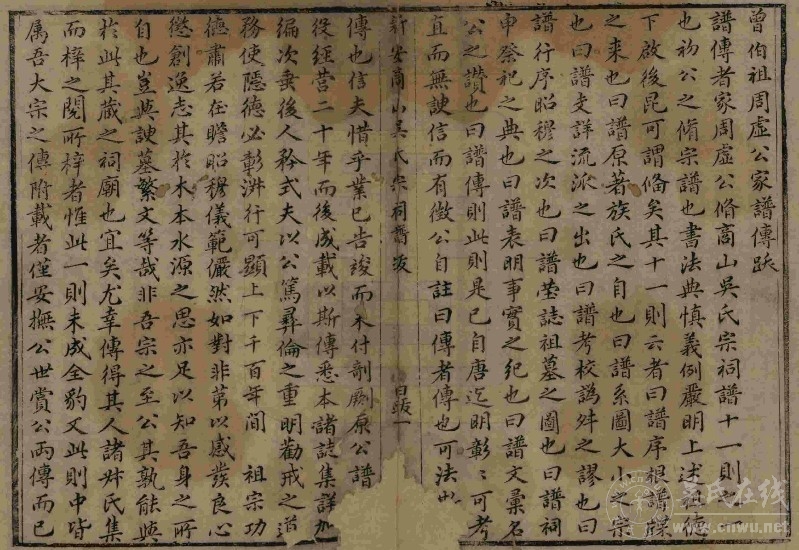 曾伯祖周虚公家譜傳跋
譜傳者家周虚公脩商山吳氏宗祠譜十一則之
也初公之脩宗譜也書法典慎義例嚴明上述祖德
下啟後昆可謂備矣其十一則云者曰譜序根譜牒
之来也曰譜原著族氏之自也曰譜系圖大小之宗
也曰譜支詳流派之出也曰譜考校譌舛之謬也曰
譜行序昭穆之次也曰譜塋誌祖墓之圖也曰譜祠
申祭祀之典也曰譜表明事實之纪也曰譜文彙名
公之讚也曰譜傳則此則是已自唐迄明彰〻可考
宜而無諛信而有徵公自註曰傳者傳也可法
新安商山吳氏宗祠譜跋
跋一
傳也信夫惜乎業已告竣而未付剞劂原公譜
役經营二十年而後成載以斯傳悉本諸誌集詳加
编次垂後人矜式夫以公篤彝倫之重明勸戒之道
務使隱德必彰洪行可顯上下千百年間 祖宗功
德肅若在瞻昭穆儀範儼然如對非第以感发良心
懲創逸志其於木本水源之思亦足以知吾身之所
自也豈與諛墓繁文等哉非吾宗之至公其孰能與
於此其蔵之祠廟也宜矣尤幸傳得其人諸姪氏集
而梓之閱所梓者惟此一則未成全豹又此則中皆
属吾大宗之傳附載者僅安撫公世賞公两傳而已
吴氏在线
www.cnwu.net